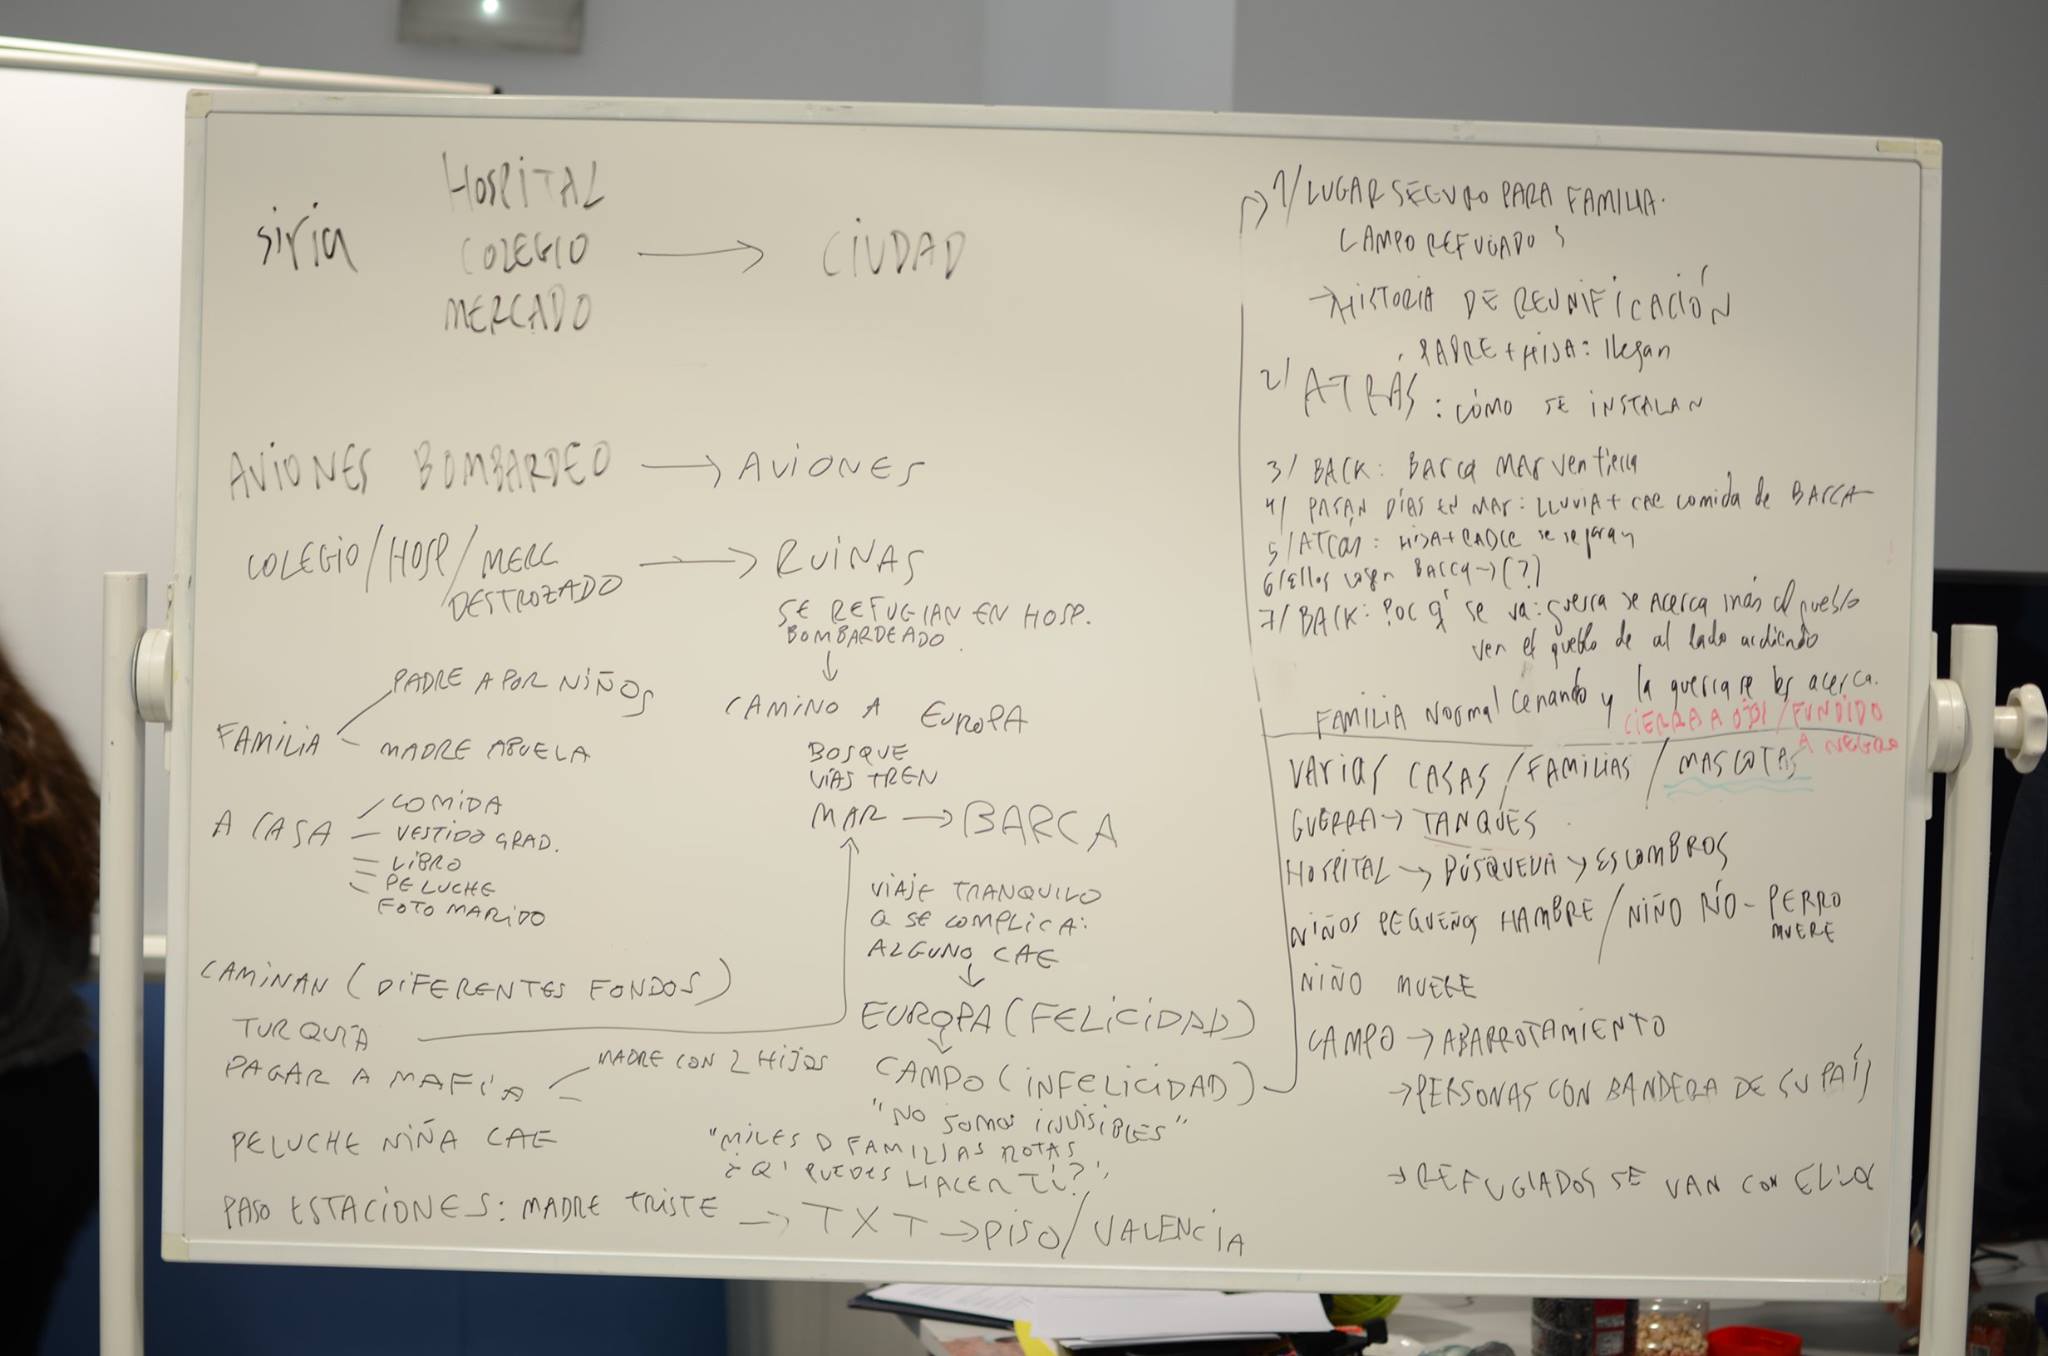 siria
HOSPITAL
COLEGIO → CIUDAD
MERCADO
AVIONES BOMBARDEO → AVIONES
COLEGIO/HOSP/MERC → RUINAS
DESTROZADO
SE REFUGIAN EN HOSP.
BOMBARDEADO.
↓
CAMINO A EUROPA
BOSQUE
VÍAS TREN
MAR → BARCA
PADRE A POR NIÑOS
FAMILIA
MADRE ABUELA
COMIDA
A CASA - VESTIDO GRAD.
LIBRO
PELUCHE
FOTO MARIDO
VIAJE TRANQUILO
Q SE COMPLICA:
ALGUNO CAE
↓
CAMINAN (DIFERENTES FONDOS)
TURQUÍA
PAGAR A MAFIA - MADRE CON 2 HIJOS
PELUCHE NIÑA CAE
EUROPA (FELICIDAD)
CAMPO (INFELICIDAD)
"NO SOMOS INVISIBLES"
"MILES D FAMILIAS ROTAS
¿Q' PUEDES HACER TÚ?"
PASO ESTACIONES: MADRE TRISTE → TXT → PISO/VALENCIA
→ 1/ LUGAR SEGURO PARA FAMILIA.
CAMPO REFUGIADOS
→ HISTORIA DE REUNIFICACIÓN
PADRE + HIJA: llegan
2/ ATRÁS: CÓMO SE INSTALAN
3/ BACK: BARCA MAR ven tierra
4/ PASAN DÍAS EN MAR: LLUVIA + CAE comida de BARCA
5/ ATRÁS: HIJA + PADRE se separan
6/ Ellos cogen BARCA → (?)
7/ BACK: POR q' se va: guerra se acerca más al pueblo
ven el pueblo de al lado ardiendo
FAMILIA NORMAL Cenando y la guerra se les acerca.
CIERRA OJOS / FUNDIDO
A NEGRO
VARIAS CASAS / FAMILIAS / MASCOTAS
GUERRA → TANQUES
HOSPITAL → BÚSQUEDA → ESCOMBROS
NIÑOS PEQUEÑOS HAMBRE / NIÑO RÍO - PERRO
MUERE
NIÑO MUERE
CAMPO → ABARROTAMIENTO
→ PERSONAS CON BANDERA DE SU PAÍS
→ REFUGIADOS SE VAN CON ELLOS